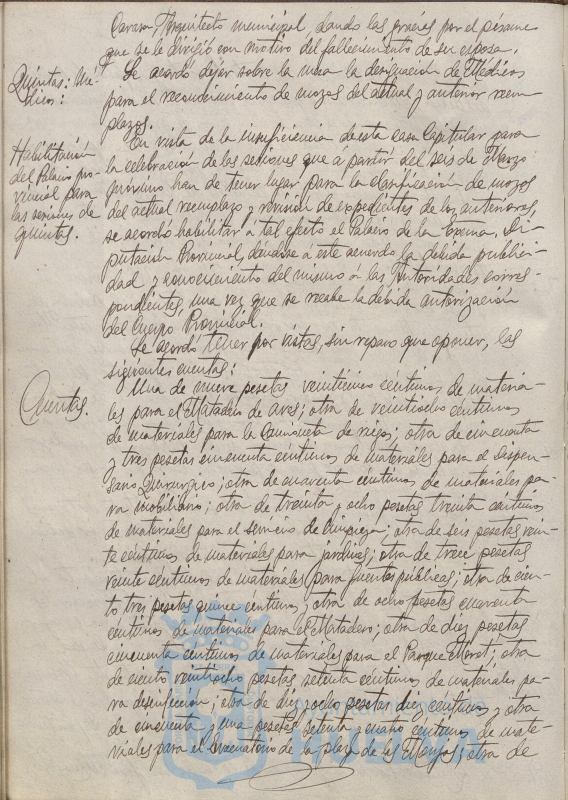 Carasa, Arquitecto municipal, dando las gracias por el pésame
que se le dirigió con motivo del fallecimiento de su esposa.
Quintas: Mé-
dicos:
Se acordó dejar sobre la mesa la designación de Médicos
para el reconocimiento de mozos del actual y anterior reem
plazos.
Habilitación
del Palacio pro-
vincial para
las sesiones de
quintas.
En vista de la insuficiencia de esta casa Capitular para
la celebración de las sesiones que á partir del seis de Marzo
próximo han de tener lugar para la clasificación de mozos
del actual reemplazo y revisión de expedientes de los anteriores,
se acordó habilitar á tal efecto el Palacio de la Excma. Di-
putación Provincial, dándose á este acuerdo la debida publici-
dad y conocimiento del mismo á las Autoridades corres-
pondientes, una vez que se recabe la debida autorización
del Cuerpo Provincial.
Se acordó tener por vistas, sin reparo que oponer, las
siguientes cuentas:
Cuentas.
Una de nueve pesetas veinticinco céntimos de materia-
les para el Matadero de aves; otra de veintiocho céntimos
de materiales para la Camioneta de riegos; otra de cincuenta
y tres pesetas cincuenta céntimos de materiales para el Dispen-
sario Quirúrgico; otra de cuarenta céntimos de materiales pa-
ra mobiliario; otra de treinta y ocho pesetas treinta céntimos
de materiales para el servicio de limpieza; otra de seis pesetas vein-
te céntimos de materiales para jardines; otra de trece pesetas
veinte céntimos de materiales para fuentes públicas; otra de cien-
to tres pesetas quince céntimos; otra de ocho pesetas cuarenta
céntimos de materiales para el Matadero; otra de diez pesetas
cincuenta céntimos de materiales para el Parque Moret; otra
de ciento veintiocho pesetas setenta céntimos de materiales pa-
ra desinfección; otra de diez y ocho pesetas diez céntimos y otra
de cincuenta y una pesetas setenta y cuatro céntimos de mate-
riales para el de la plaza de las Monjas; otra de